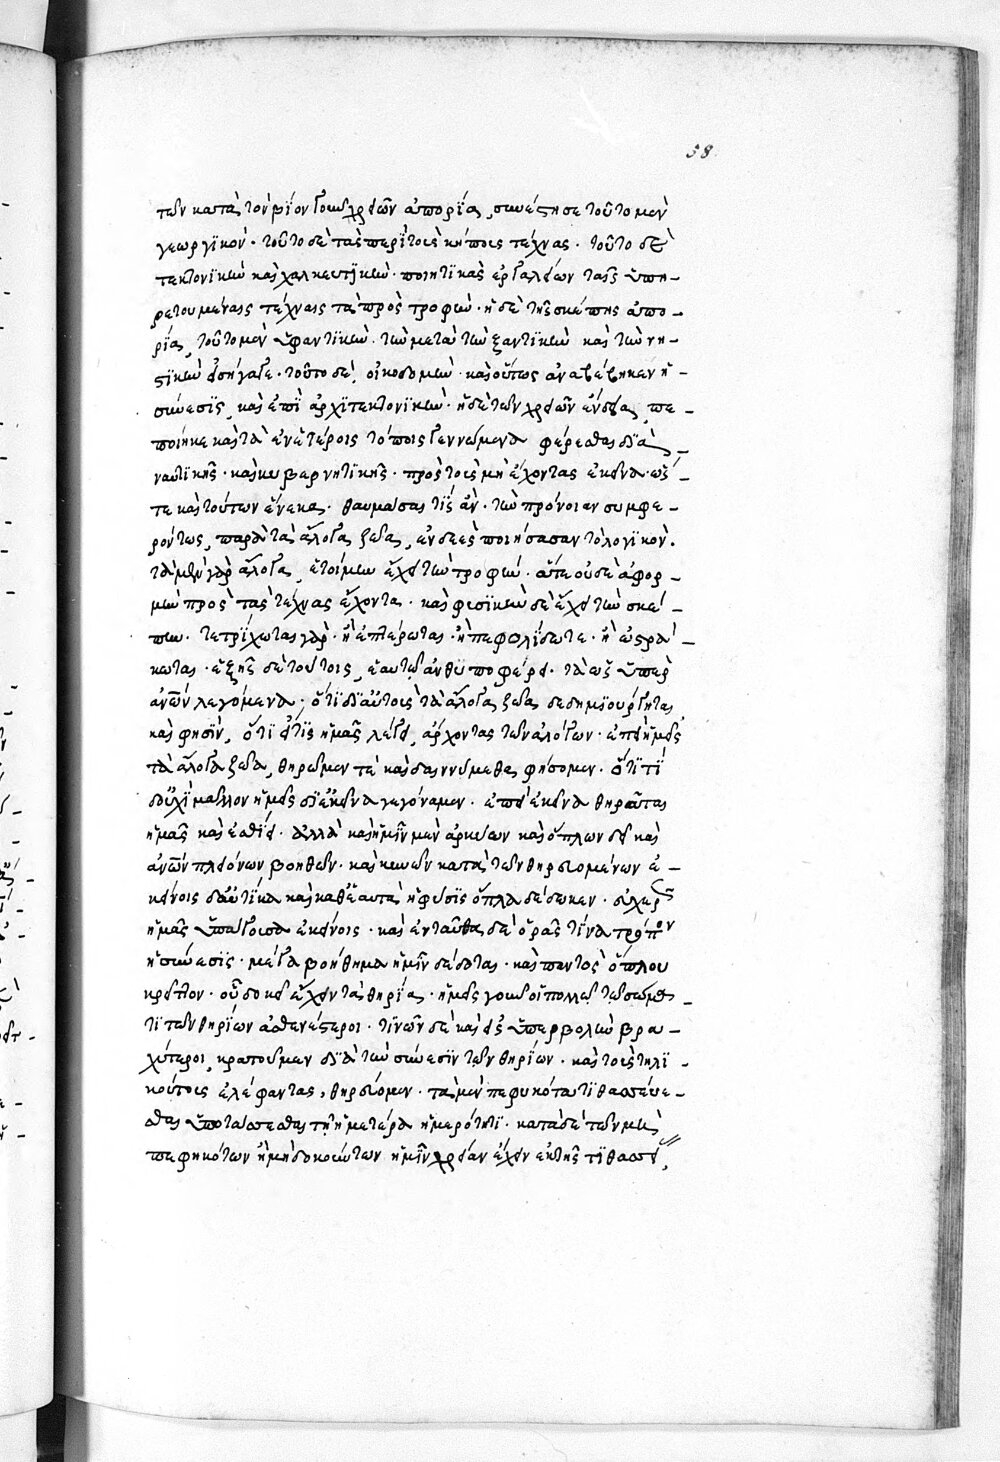 58.
τῶν κατὰ τὸν βίον γοῦν χρειῶν ἀπορία, συνέστησε τοῦτο μὲν
γεωργϊκόν· τοῦτο δὲ τὰς περὶ τοῖς κήποις τέχνας· τοῦτο δὲ
τεκτονϊκὴν καὶ χαλκευτϊκὴν· ποιητϊκὰς ἐργαλείων ταῖς ὑπη-
ρετουμέναις τέχναις τὰ πρὸς τροφὴν· ἡ δὲ τῆς σκέπης ἀπο-
ρία, τοῦτο μὲν ὑφαντϊκὴν· τὴν μετὰ τὴν ξαντϊκὴν καὶ τὴν νη-
στϊκὴν εἰσήγαγε· τοῦτο δὲ, οἰκοδομὴν· καὶ οὕτως ἀναβέβηκεν ἡ
σύνεσϊς, καὶ ἐπὶ ἀρχϊτεκτονϊκὴν· ἡ δὲ τῶν χρειῶν ἔνδεια, πε-
ποίηκε καὶ τὰ ἐν ἑτέροις τόποις γεννώμενα φέρεσθαι δϊὰ
ναυτϊκῆς· καὶ κυβερνητϊκῆς· πρὸς τοὺς μὴ ἔχοντας ἐκεῖνα· ὥσ-
τε καὶ τούτων ἕνεκα· θαυμάσαι τὶς ἂν· τὴν πρόνοιαν συμφε-
ρόντως, παρὰ τὰ ἄλογα ζῶα, ἐνδεὲς ποιήσασαν τὸ λογϊκόν.
τὰ μὲν γὰρ ἄλογα, ἑτοίμην ἔχει τὴν τροφὴν· ἅτε οὐδὲ ἀφορ-
μὴν πρὸς τὰς τέχνας ἔχοντα· καὶ φυσϊκὴν δὲ ἔχει τὴν σκέ-
πην· τετρίχωται γὰρ· ἢ ἐπτέρωται· ἢ πεφολίδωται· ἢ ὠστρά-
κωται· ἑξῆς δὲ τούτοις, ἑαυτῶ ἀνθϋποφέρει· τὰ ὡς ὑπὲρ
ἀνῶν λεγόμενα, ὅτϊ δϊ αὐτοὺς τὰ ἄλογα ζῶα δεδημϊούργηται
καὶ φησϊν, ὅτϊ εἴ τϊς ἡμᾶς λέγει, ἄρχοντας τῶν ἀλόγων· ἐπεὶ ἡμεῖς
τὰ ἄλογα ζῶα, θηρῶμεν τὲ καὶ δαινύμεθα, φήσομεν· ὅτϊ τί
δ οὐχὶ μᾶλλον ἡμεῖς δϊ ἐκεῖνα γεγόναμεν· ἐπεὶ ἐκεῖνα θηρᾶται
ἡμᾶς καὶ ἐσθίει· ἀλλὰ καὶ ἡμῖν μὲν ἀρκύων καὶ ὅπλων δεῖ καὶ
ἀνῶν πλειόνων βοηθῶν· καὶ κυνῶν κατὰ τῶν θηρευομένων ἐ-
κείνοις δ αὐτίκα καὶ καθ ἑαυτὰ ἡ φύσϊς ὅπλα δέδωκεν· εὐχερῶς
ἡμᾶς ὑπάγουσα ἐκείνοις· καὶ ἐνταῦθα δὲ ὁρᾶς τίνα τρόπον
ἡ σύνεσϊς· μέγα βοήθημα ἡμῖν δέδοται· καὶ παντὸς ὅπλου
κρεῖττον· οὗ δοκεῖ ἔχειν τὰ θηρία· ἡμεῖς γοῦν οἱ πολλῶ τῶ σώμα-
τϊ τῶν θηρίων ἀσθενέστεροι· τϊνῶν δὲ καὶ εἰς ὑπερβολὴν βρα-
χύτεροι, κρατοῦμεν δϊὰ τὴν σύνεσϊν τῶν θηρίων· καὶ τοὺς τηλϊ-
κούτους ἐλέφαντας, θηρεύομεν· τὰ μὲν πεφυκότα τϊθασσεύε-
σθαι ὑποτάσσεσθαι τῇ ἡμετέρα ἡμερότητϊ· κατὰ δὲ τῶν μὴ
πεφηκότων ἢ μὴ δοκούντων ἡμῖν χρείαν ἔχειν ἐκ τῆς τϊθασσεύ